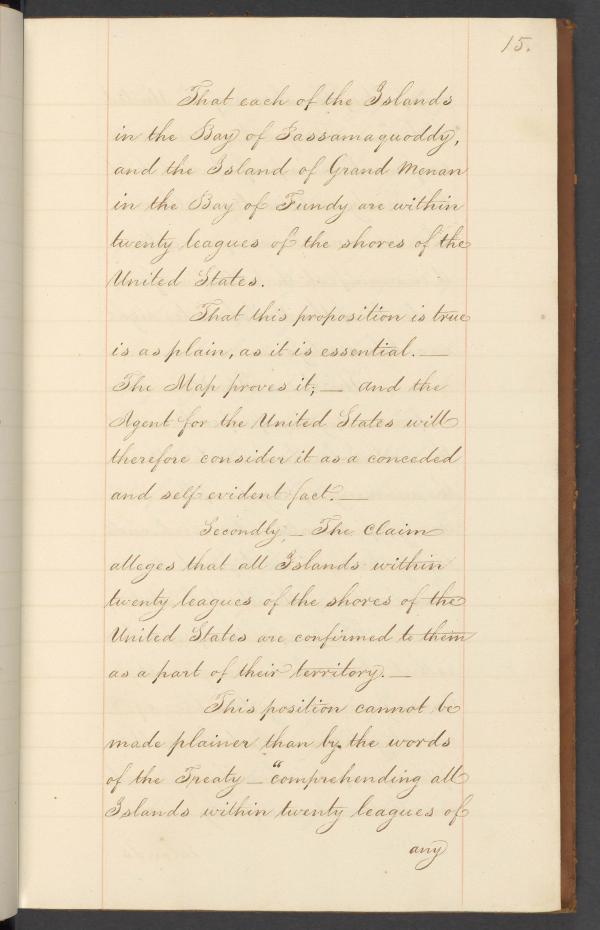 15.
That each of the Islands
in the Bay of Passamaquoddy,
and the Island of Grand Menan
in the Bay of Fundy are within
twenty leagues of the shores of the
United States.
That this proposition is true
is as plain, as it is essential. —
The Map proves it; — and the
Agent for the United States will
therefore consider it as a conceded
and self evident fact. —
Secondly, — The claim
alleges that all Islands within
twenty leagues of the shores of the
United States are confirmed to them
as a part of their territory. —
This position cannot be
made plainer than by the words
of the Treaty — "comprehending all
Islands within twenty leagues of
any